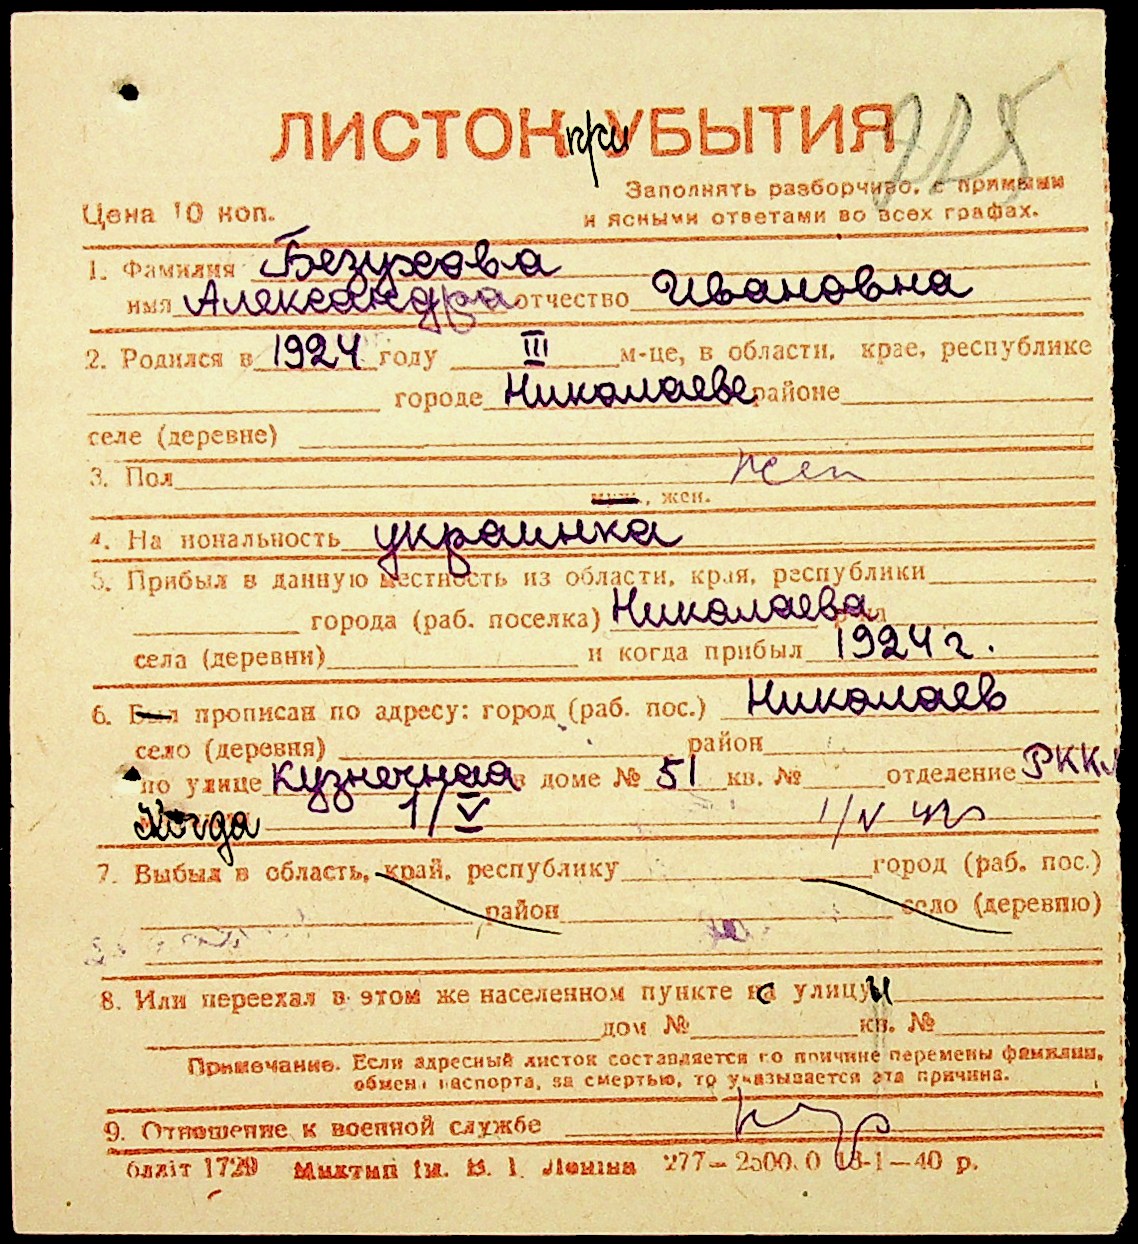 ЛИСТОК при УБЫТИЯ
225
Заполнять разборчиво, с прямыми
Цена 10 коп. и ясными ответами во всех графах.
1. Фамилия Безухова
имя Александра отчество Ивановна
2. Родился в 1924 году III м-це, в области, крае, республике
городе Николаеве районе
селе (деревне)
3. Пол жен
муж., жен.
4. Национальность украинка
5. Прибыл в данную местность из области, края, республики
города (раб. поселка) Николаева
села (деревни) и когда прибыл 1924 г.
6. Был прописан по адресу: город (раб. пос.) Николаев
село (деревня) район
по улице Кузнечная в доме № 51 кв. № отделение РККМ
Когда 1/V 1/V
7. Выбыл в область, край, республику город (раб. пос.)
район село (деревню)
8. Или переехал в этом же населенном пункте с улицы
дом № кв. №
Примечание. Если адресный листок составляется по причине перемены фамилии,
обмена паспорта, за смертью, то указывается эта причина.
9. Отношение к военной службе
облліт 1729 Миктип ім. В. І. Леніна 277—2500.0 18-1—40 р.